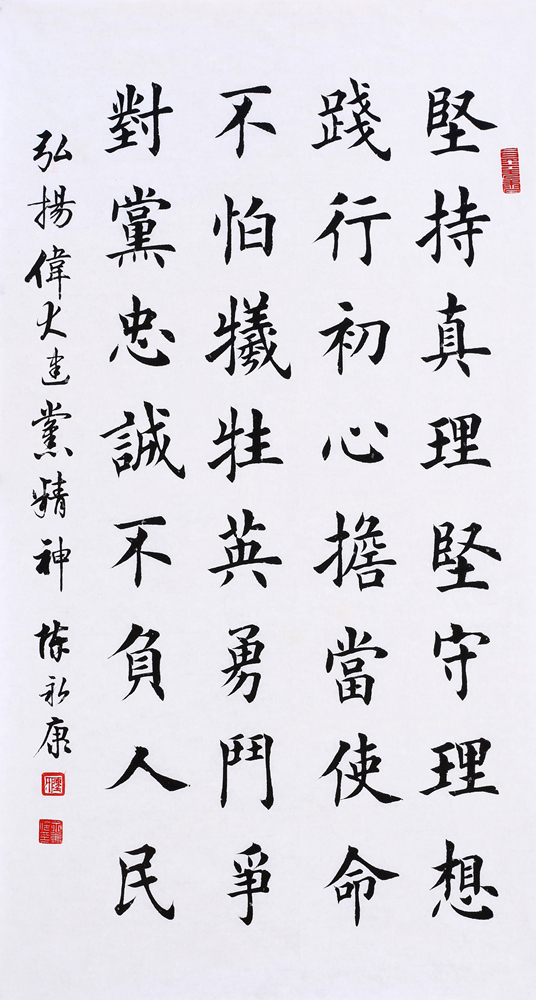 堅持真理堅守理想
踐行初心擔當使命
不怕犧牲英勇鬥爭
對黨忠誠不負人民
弘揚偉大建黨精神 陳永康